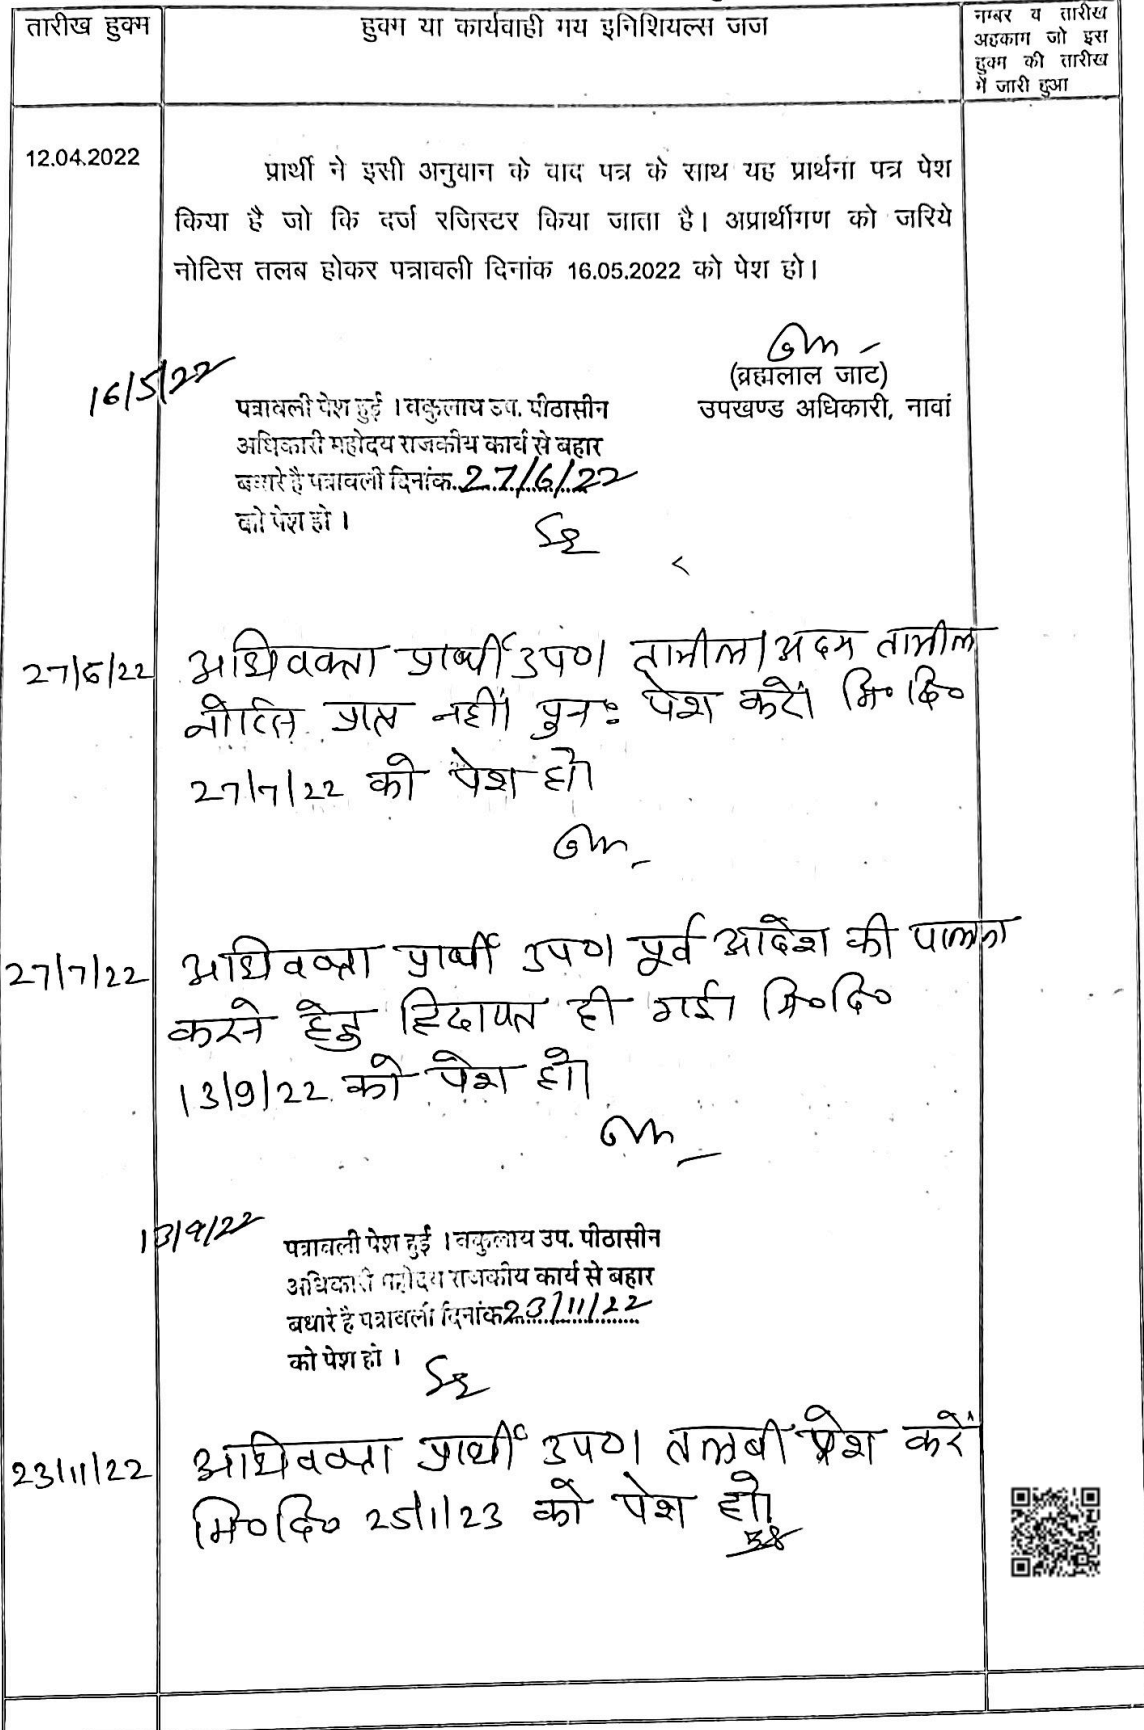 तारीख हुक्म
हुक्म या कार्यवाही मय इनिशियल्स जज
नम्बर व तारीख
अहकाम जो इस
हुक्म की तारीख
में जारी हुआ
12.04.2022
प्रार्थी ने इसी अनुवान के वाद पत्र के साथ यह प्रार्थना पत्र पेश
किया है जो कि दर्ज रजिस्टर किया जाता है। अप्रार्थीगण को जरिये
नोटिस तलब होकर पत्रावली दिनांक 16.05.2022 को पेश हो।
(ब्रह्मलाल जाट)
उपखण्ड अधिकारी, नावां
16/5/22
पत्रावली पेश हुई । वकुलाय उप. पीठासीन
अधिकारी महोदय राजकीय कार्य से बहार
बधारे है पत्रावली दिनांक 27/6/22
को पेश हो ।
27/6/22
अधिवक्ता प्रार्थी उप०। तामील/अदम तामील
नोटिस प्राप्त नहीं। पुनः पेश करें। मि० दि०
27/7/22 को पेश हो।
27/7/22
अधिवक्ता प्रार्थी उप०। पूर्व आदेश की पालना
करने हेतु हिदायत दी गई। मि०दि०
13/9/22 को पेश हो।
13/9/22
पत्रावली पेश हुई । वकुलाय उप. पीठासीन
अधिकारी महोदय राजकीय कार्य से बहार
बधारे है पत्रावली दिनांक 23/11/22
को पेश हो ।
23/11/22
अधिवक्ता प्रार्थी उप०। तलबी पेश करें
मि०दि० 25/1/23 को पेश हो।